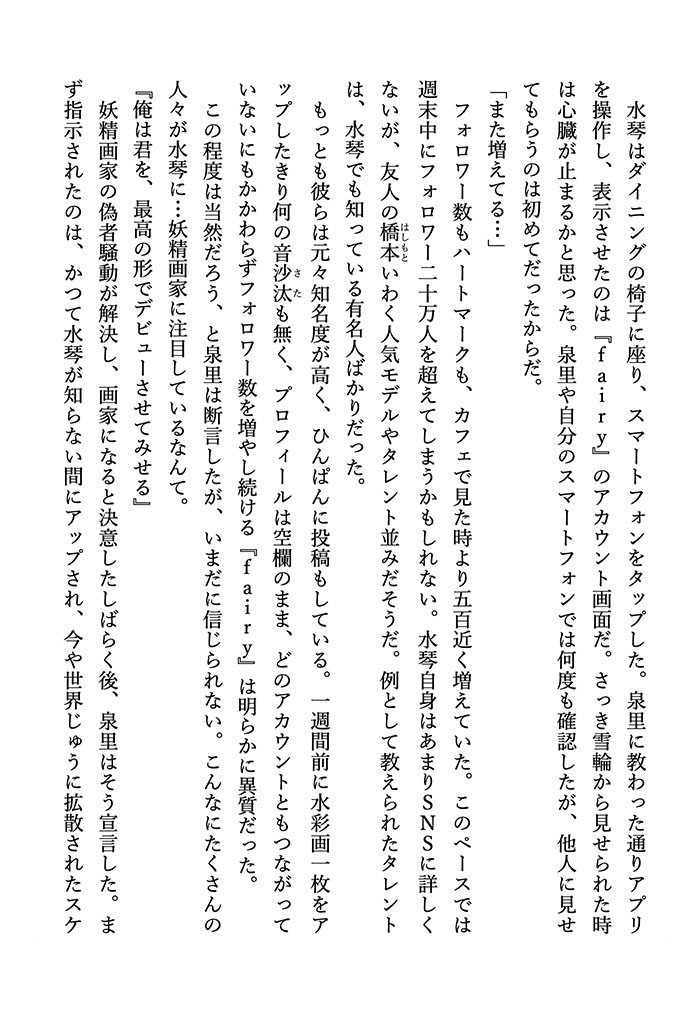 水琴はダイニングの椅子に座り、スマートフォンをタップした。泉里に教わった通りアプリ
を操作し、表示させたのは『fairy』のアカウント画面だ。さっき雪輪から見せられた時
は心臓が止まるかと思った。泉里や自分のスマートフォンでは何度も確認したが、他人に見せ
てもらうのは初めてだったからだ。
「また増えてる…」
　フォロワー数もハートマークも、カフェで見た時より五百近く増えていた。このペースでは
週末中にフォロワー二十万人を超えてしまうかもしれない。水琴自身はあまりSNSに詳しく
ないが、友人の橋本はしもといわく人気モデルやタレント並みだそうだ。例として教えられたタレント
は、水琴でも知っている有名人ばかりだった。
　もっとも彼らは元々知名度が高く、ひんぱんに投稿もしている。一週間前に水彩画一枚をア
ップしたきり何の音沙汰さたも無く、プロフィールは空欄のまま、どのアカウントともつながって
いないにもかかわらずフォロワー数を増やし続ける『fairy』は明らかに異質だった。
　この程度は当然だろう、と泉里は断言したが、いまだに信じられない。こんなにたくさんの
人々が水琴に…妖精画家に注目しているなんて。
『俺は君を、最高の形でデビューさせてみせる』
　妖精画家の偽者騒動が解決し、画家になると決意したしばらく後、泉里はそう宣言した。ま
ず指示されたのは、かつて水琴が知らない間にアップされ、今や世界じゅうに拡散されたスケ